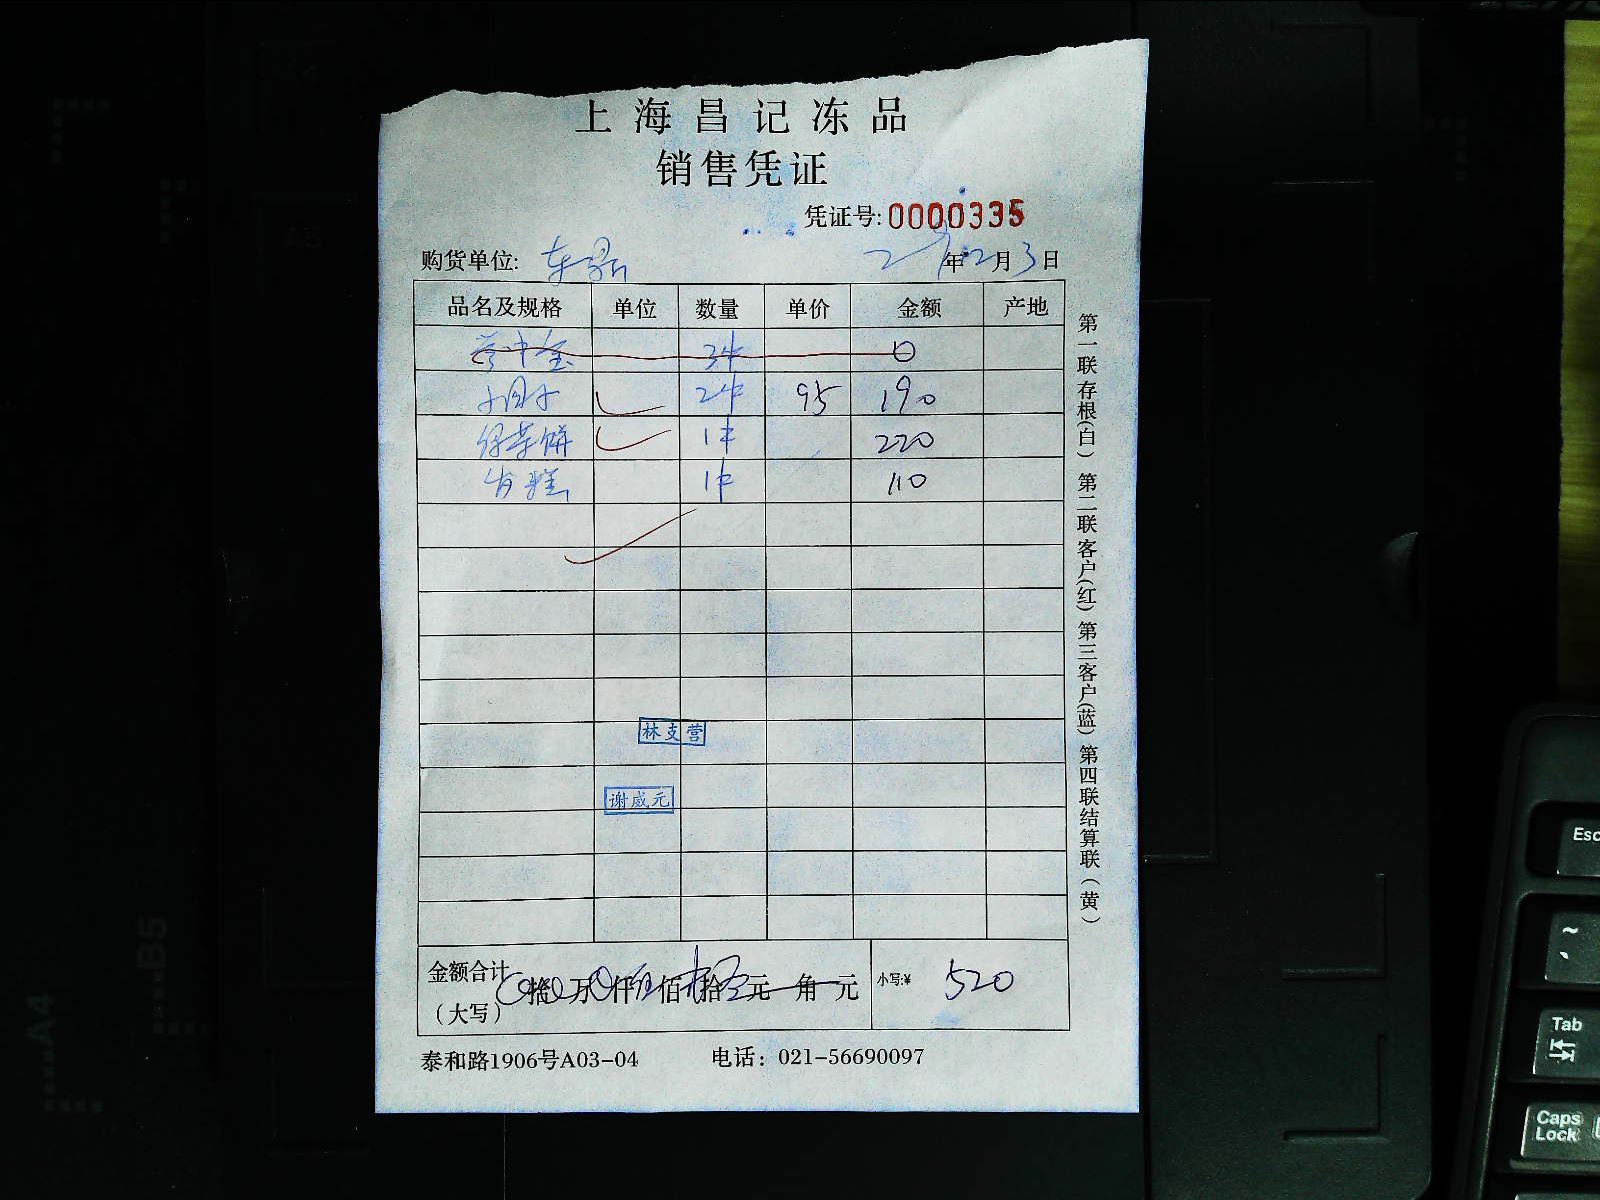 上海昌记冻品
销售凭证
凭证号:0000335
购货单位: 东 年2月3日
品名及规格 单位 数量 单价 金额 产地
3件 0
2件 95 190
绿茶饼 1件 220
发糕 1件 110
林支营
谢威元
金额合计(大写) 拾 万 仟 佰 拾 元 角 元 小写:¥ 520
泰和路1906号A03-04 电话：021-56690097
第一联存根(白) 第二联客户(红) 第三客户(蓝) 第四联结算联(黄)
A4
B5
Esc
~
Tab
Caps Lock